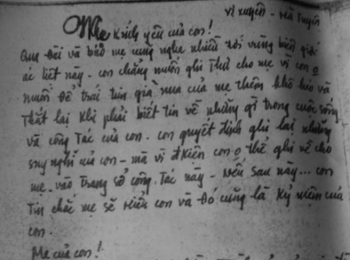 Vị xuyên - Hà Tuyên
Mẹ kính yêu của con!
Qua đài và báo mẹ cũng nghe nhiều tới vùng biên giới
ác liệt này. con chẳng muốn ghi thư cho mẹ vì con o
muốn để trái tim già nua của mẹ thêm khô héo và
thắt lại khi phải biết tin về những gì trong cuộc sống
và công tác của con. con quyết định ghi lại những
suy nghĩ của con - mà vì đ kiện con o thể ghi về cho
mẹ vào trang sổ công tác này - Nếu sau này... con
Tin chắc mẹ sẽ hiểu con và đó cũng là kỷ niệm của
con.
Mẹ của con!